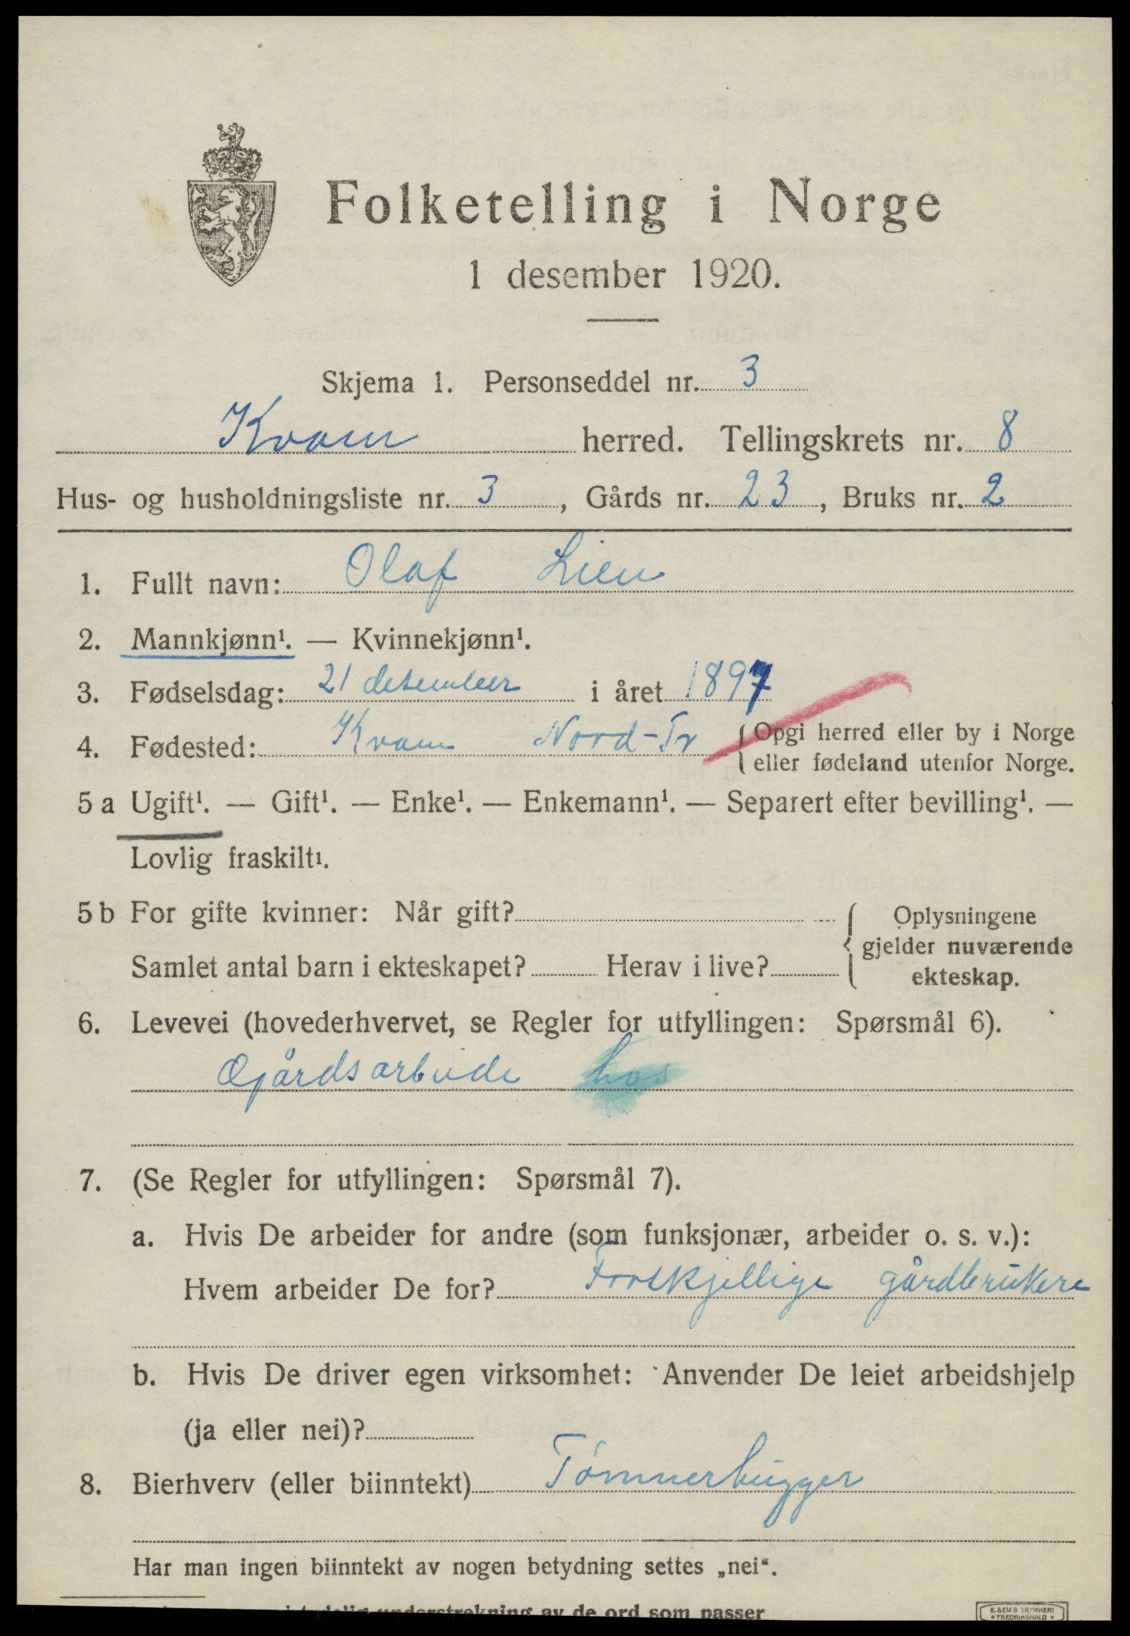 Folketelling i Norge
1 desember 1920.
Skjema 1. Personseddel nr. 3
Kvam herred. Tellingskrets nr. 8
Hus- og husholdningsliste nr. 3, Gårds nr. 23, Bruks nr. 2
1. Fullt navn: Olaf Lien
2. Mannkjønn¹. — Kvinnekjønn¹.
3. Fødselsdag: 21 desember i året 1897
4. Fødested: Kvam Nord-Tr { Opgi herred eller by i Norge
eller fødeland utenfor Norge.
5 a Ugift¹. — Gift¹. — Enke¹. — Enkemann¹. — Separert efter bevilling¹. —
Lovlig fraskilt¹.
5 b For gifte kvinner: Når gift? { Oplysningene
gjelder nuværende
Samlet antal barn i ekteskapet? Herav i live? ekteskap.
6. Levevei (hovederhvervet, se Regler for utfyllingen: Spørsmål 6).
Gårdsarbeide hos
7. (Se Regler for utfyllingen: Spørsmål 7).
a. Hvis De arbeider for andre (som funksjonær, arbeider o. s. v.):
Hvem arbeider De for? Forskjellige gårdbrukere
b. Hvis De driver egen virksomhet: Anvender De leiet arbeidshjelp
(ja eller nei)?
8. Bierhverv (eller biinntekt) Tømmerhugger
Har man ingen biinntekt av nogen betydning settes „nei“.
understrekning av de ord som passer
E. SEM'S TRYKKERI
FREDRIKSHALD